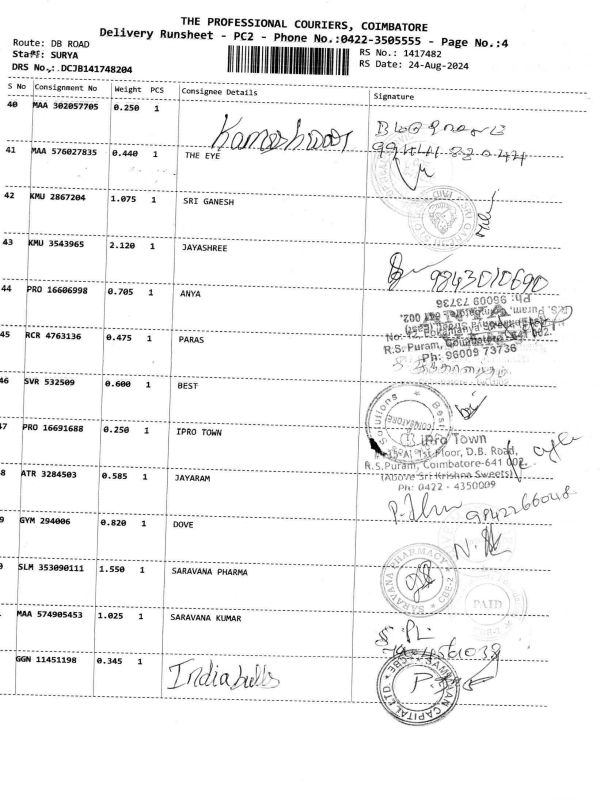 THE PROFESSIONAL COURIERS, COIMBATORE
Delivery Runsheet - PC2 - Phone No.:0422-3505555 - Page No.:4
Route: DB ROAD
Staff: SURYA
RS No.: 1417482
DRS No.: DCJB141748204
RS Date: 24-Aug-2024
S No Consignment No Weight PCS Consignee Details Signature
40 MAA 302057705 0.250 1
41 MAA 576027835 0.440 1 THE EYE
42 KMU 2867204 1.075 1 SRI GANESH
43 KMU 3543965 2.120 1 JAYASHREE
9843010690
44 PRO 16606998 0.705 1 ANYA
Ph: 96009 73736
45 RCR 4763136 0.475 1 PARAS
R.S. Puram, Coimbatore - 641 002.
Ph: 96009 73736
46 SVR 532509 0.600 1 BEST
47 PRO 16691688 0.250 1 IPRO TOWN
iPro Town
1st Floor, D.B. Road,
R.S.Puram, Coimbatore-641 002
(Above Sri Krishna Sweets)
Ph: 0422 - 4350009
8 ATR 3284503 0.585 1 JAYARAM
9842266048
9 GYM 294006 0.820 1 DOVE
0 SLM 353090111 1.550 1 SARAVANA PHARMA
SARAVANA PHARMACY
CBE-2
PAID
MAA 574905453 1.025 1 SARAVANA KUMAR
GGN 11451198 0.345 1 Indiabulls
CAPITAL LTD.